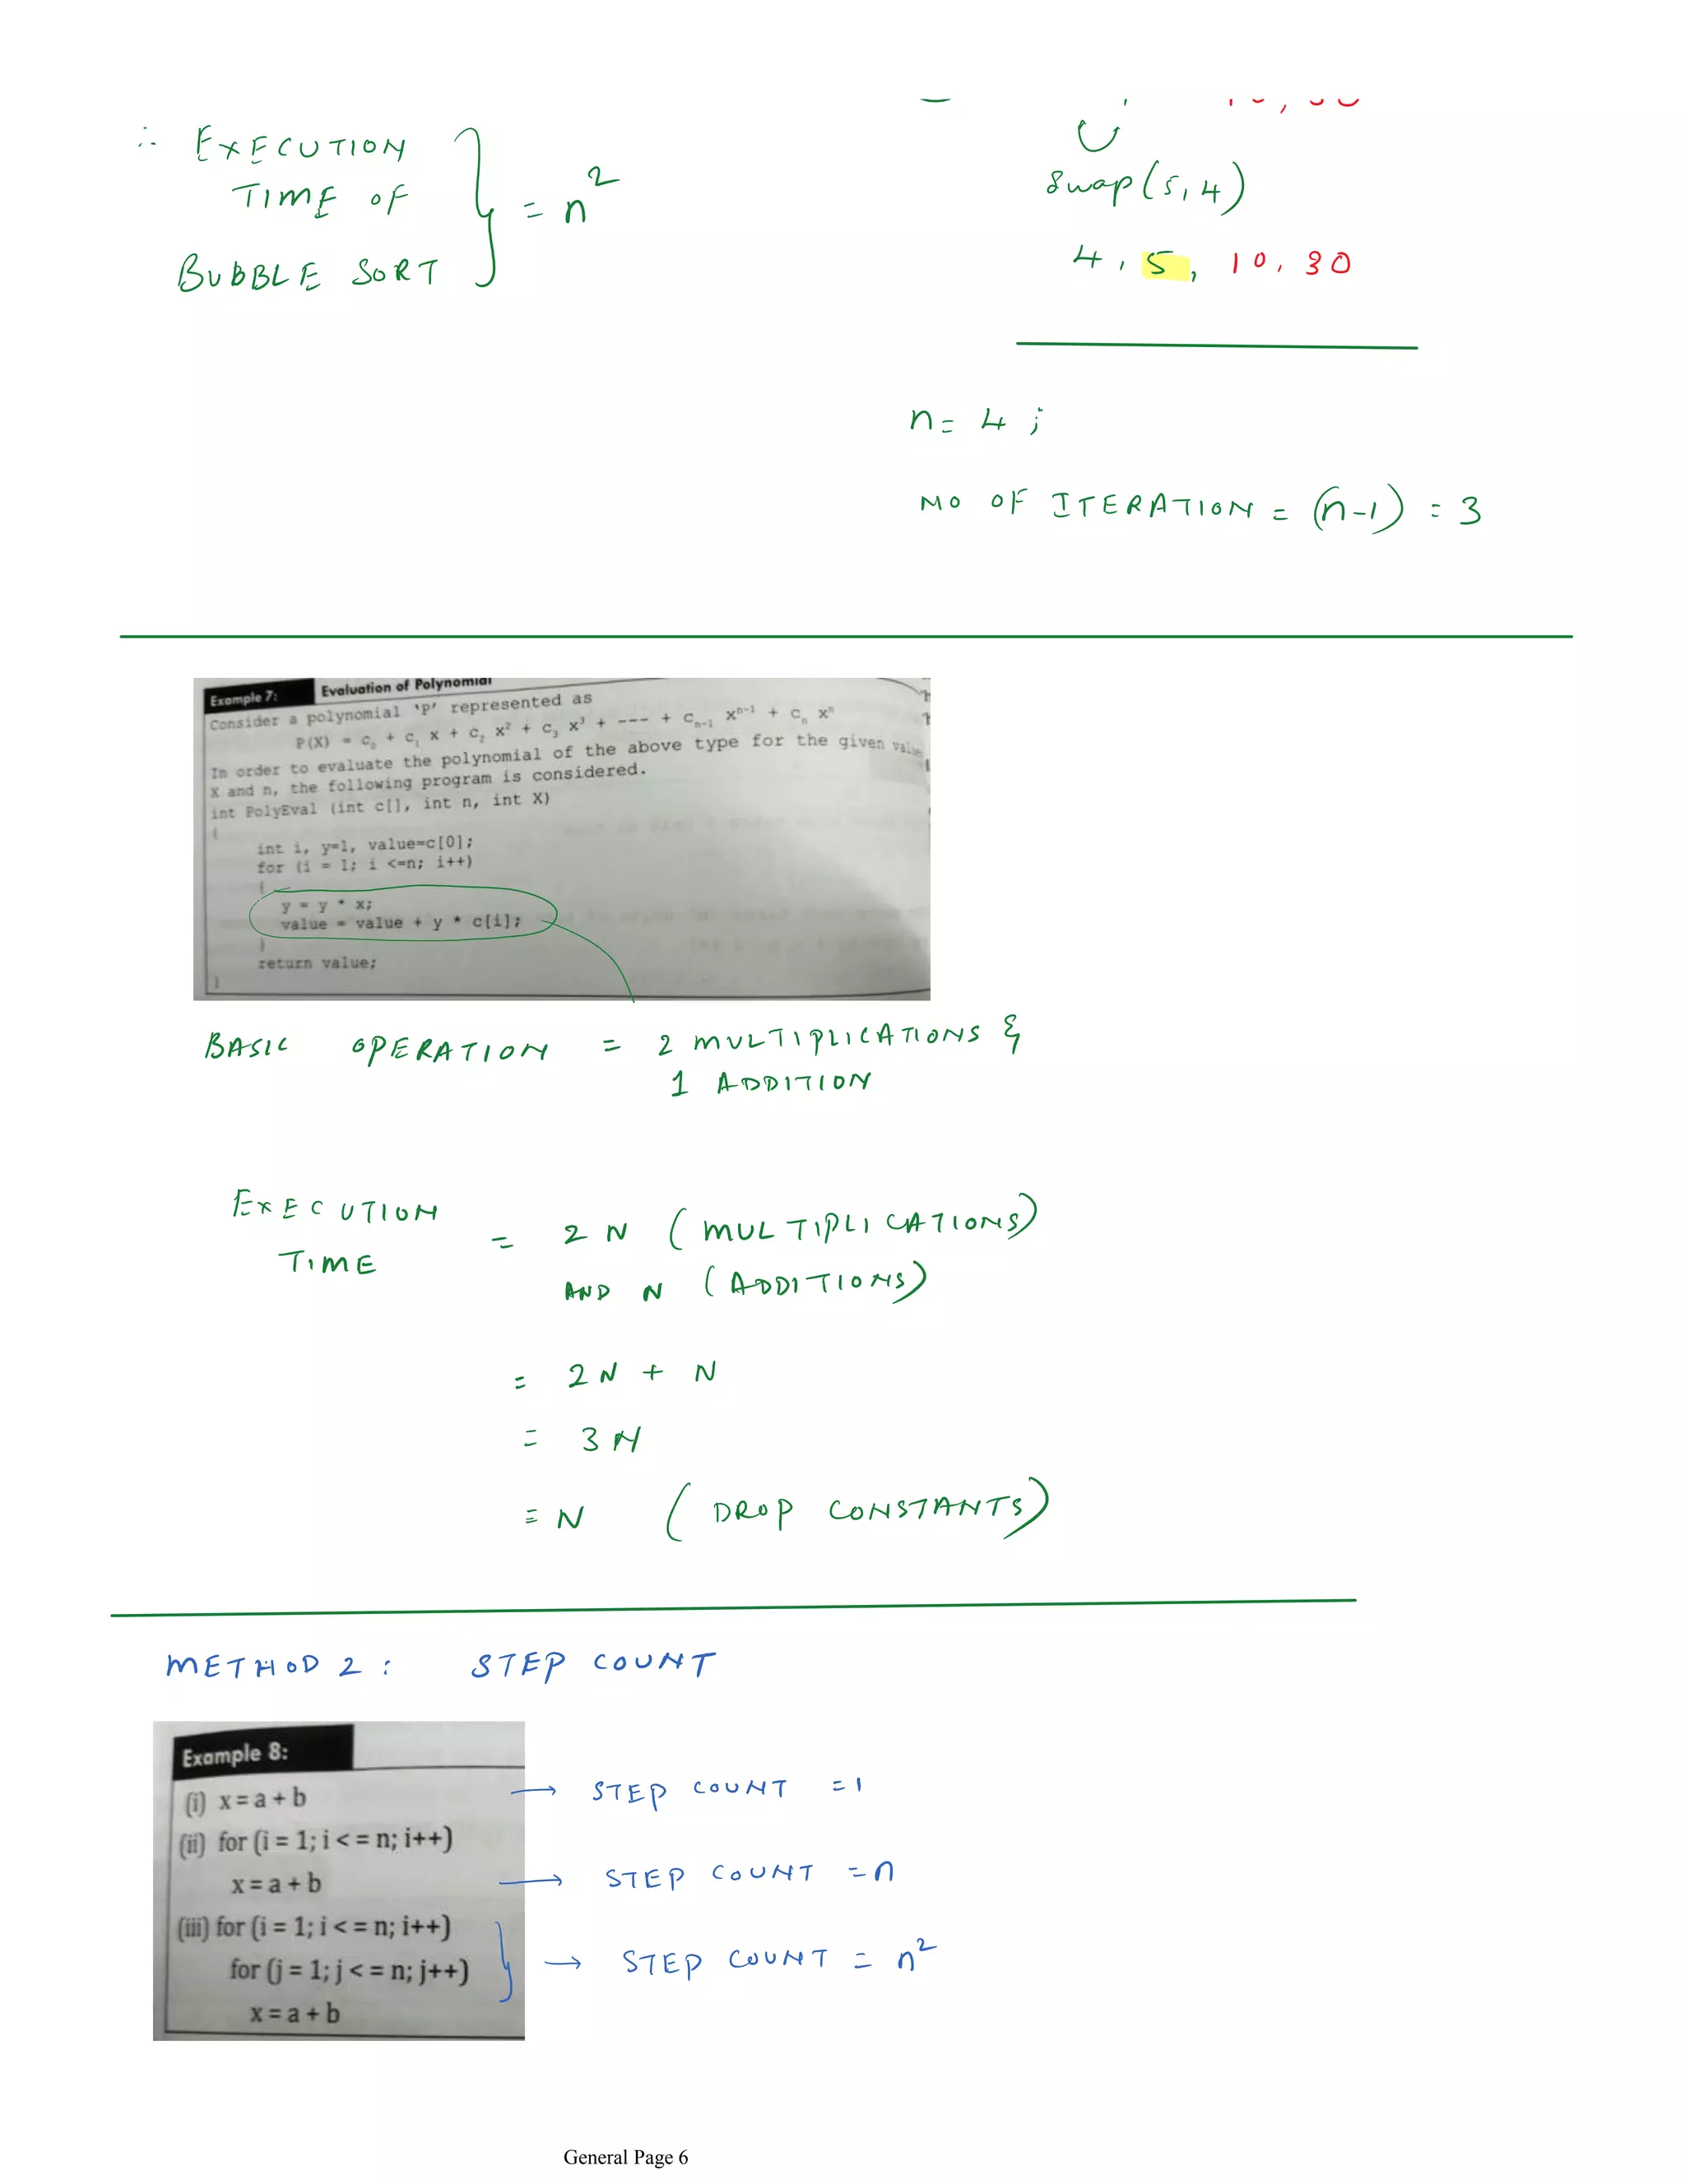 ∴ EXECUTION
TIME OF
BUBBLE SORT
= n²
swap(5,4)
4, 5, 10, 30
n = 4 ;
NO OF ITERATION = (n-1) = 3
Example 7: Evaluation of Polynomial
Consider a polynomial 'P' represented as
P(X) = c₀ + c₁ x + c₂ x² + c₃ x³ + --- + cₙ₋₁ xⁿ⁻¹ + cₙ xⁿ
In order to evaluate the polynomial of the above type for the given value
X and n, the following program is considered.
int PolyEval (int c[], int n, int X)
{
int i, y=1, value=c[0];
for (i = 1; i <=n; i++)
{
y = y * x;
value = value + y * c[i];
}
return value;
}
BASIC OPERATION = 2 MULTIPLICATIONS &
1 ADDITION
EXECUTION
TIME
= 2N (MULTIPLICATIONS)
AND N (ADDITIONS)
= 2N + N
= 3N
= N (DROP CONSTANTS)
METHOD 2 : STEP COUNT
Example 8:
(i) x = a + b → STEP COUNT = 1
(ii) for (i = 1; i < = n; i++)
x = a + b → STEP COUNT = n
(iii) for (i = 1; i < = n; i++)
for (j = 1; j < = n; j++) → STEP COUNT = n²
x = a + b
General Page 6